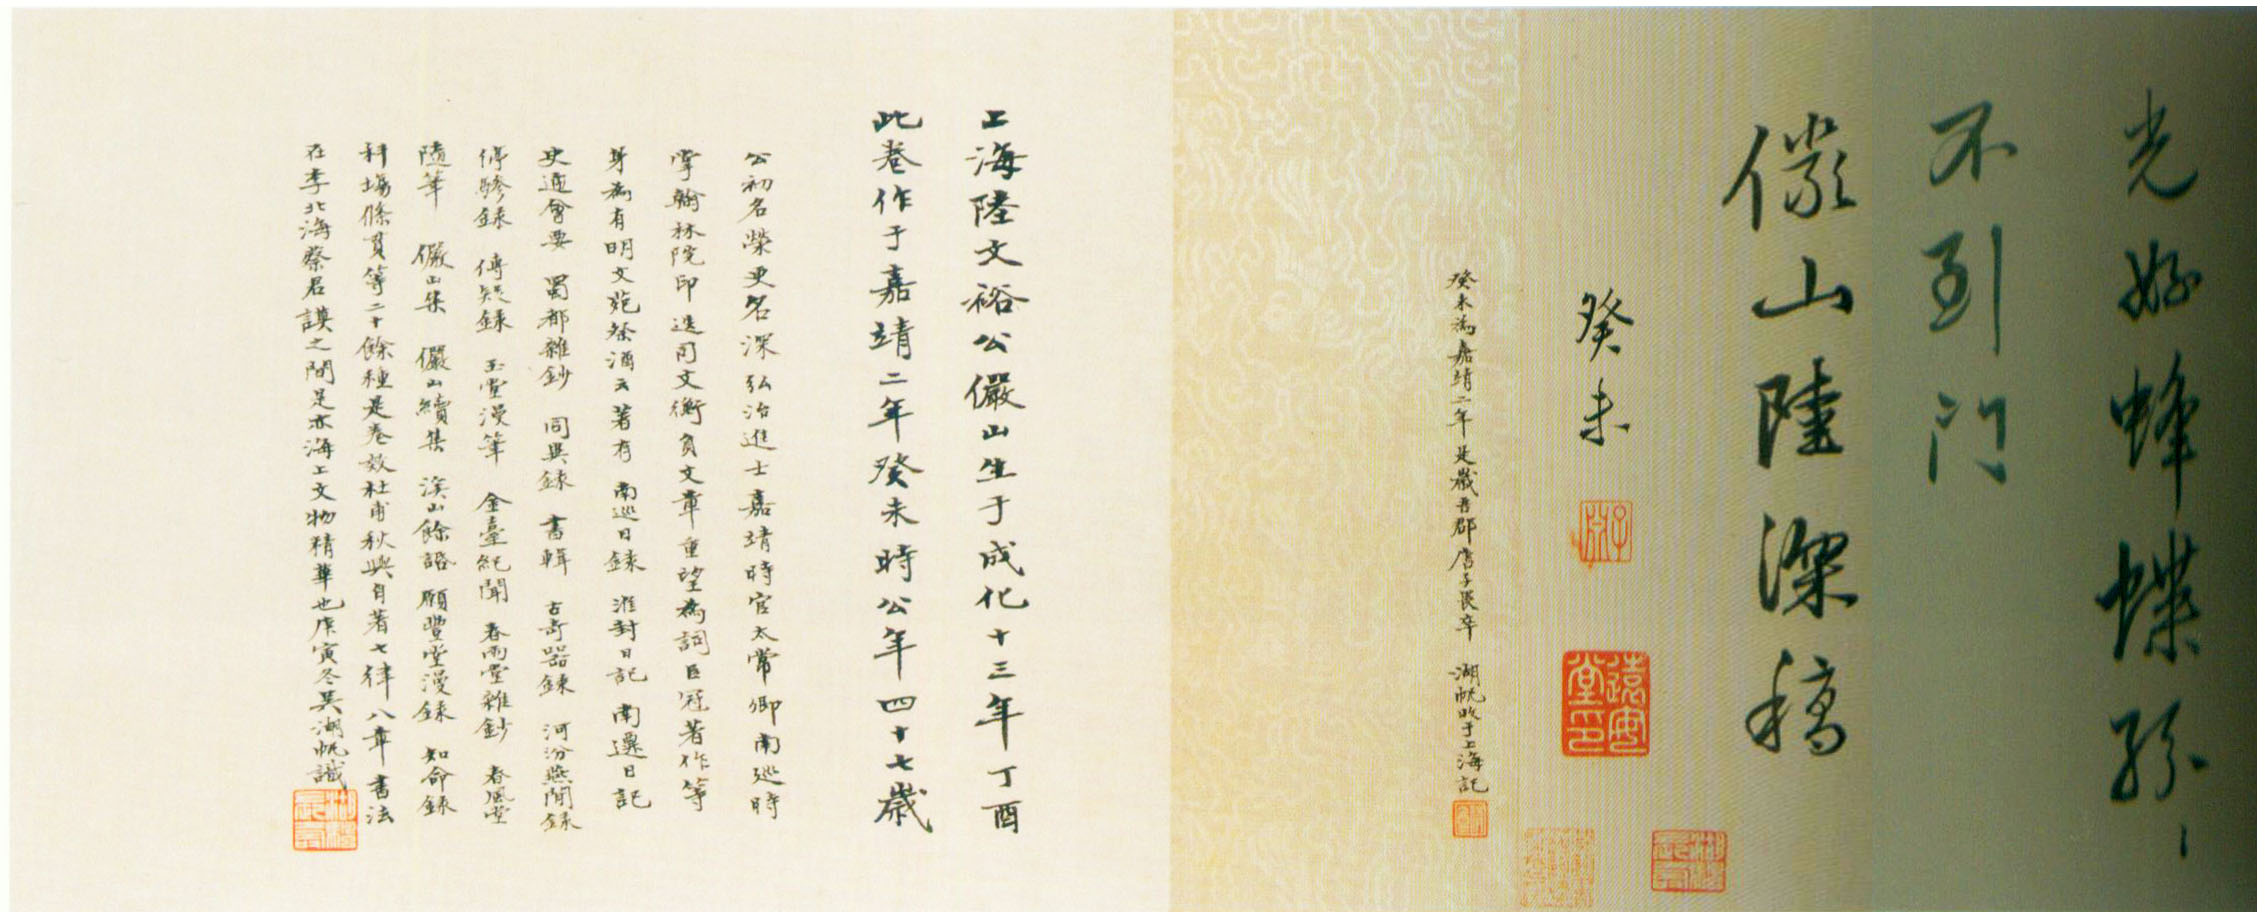 光好蜂蝶紛〻
不到門
儼山陸深稿
癸未
子淵
遠安堂印
癸未為嘉靖二年是歲吾郡唐子畏卒　湖帆時于上海記
上海陸文裕公儼山生于成化十三年丁酉
此卷作于嘉靖二年癸未時公年四十七歲
公初名榮更名深弘治進士嘉靖時官太常卿南巡時
掌翰林院印迭司文衡負文章重望為詞臣冠著作等
身為有明文苑祭酒云著有　南巡日錄　淮封日記　南遷日記
史通會要　蜀都雜鈔　同異錄　書輯　古奇器錄　河汾燕閒錄
停驂錄　傳疑錄　玉堂漫筆　金臺紀聞　春雨堂雜鈔　春風堂
隨筆　儼山集　儼山續集　溪山餘話　願豐堂漫錄　知命錄
科場條貫等二十餘種是卷效杜甫秋興自著七律八章書法
在李北海蔡君謨之間是亦海上文物精華也庚寅冬吳湖帆識